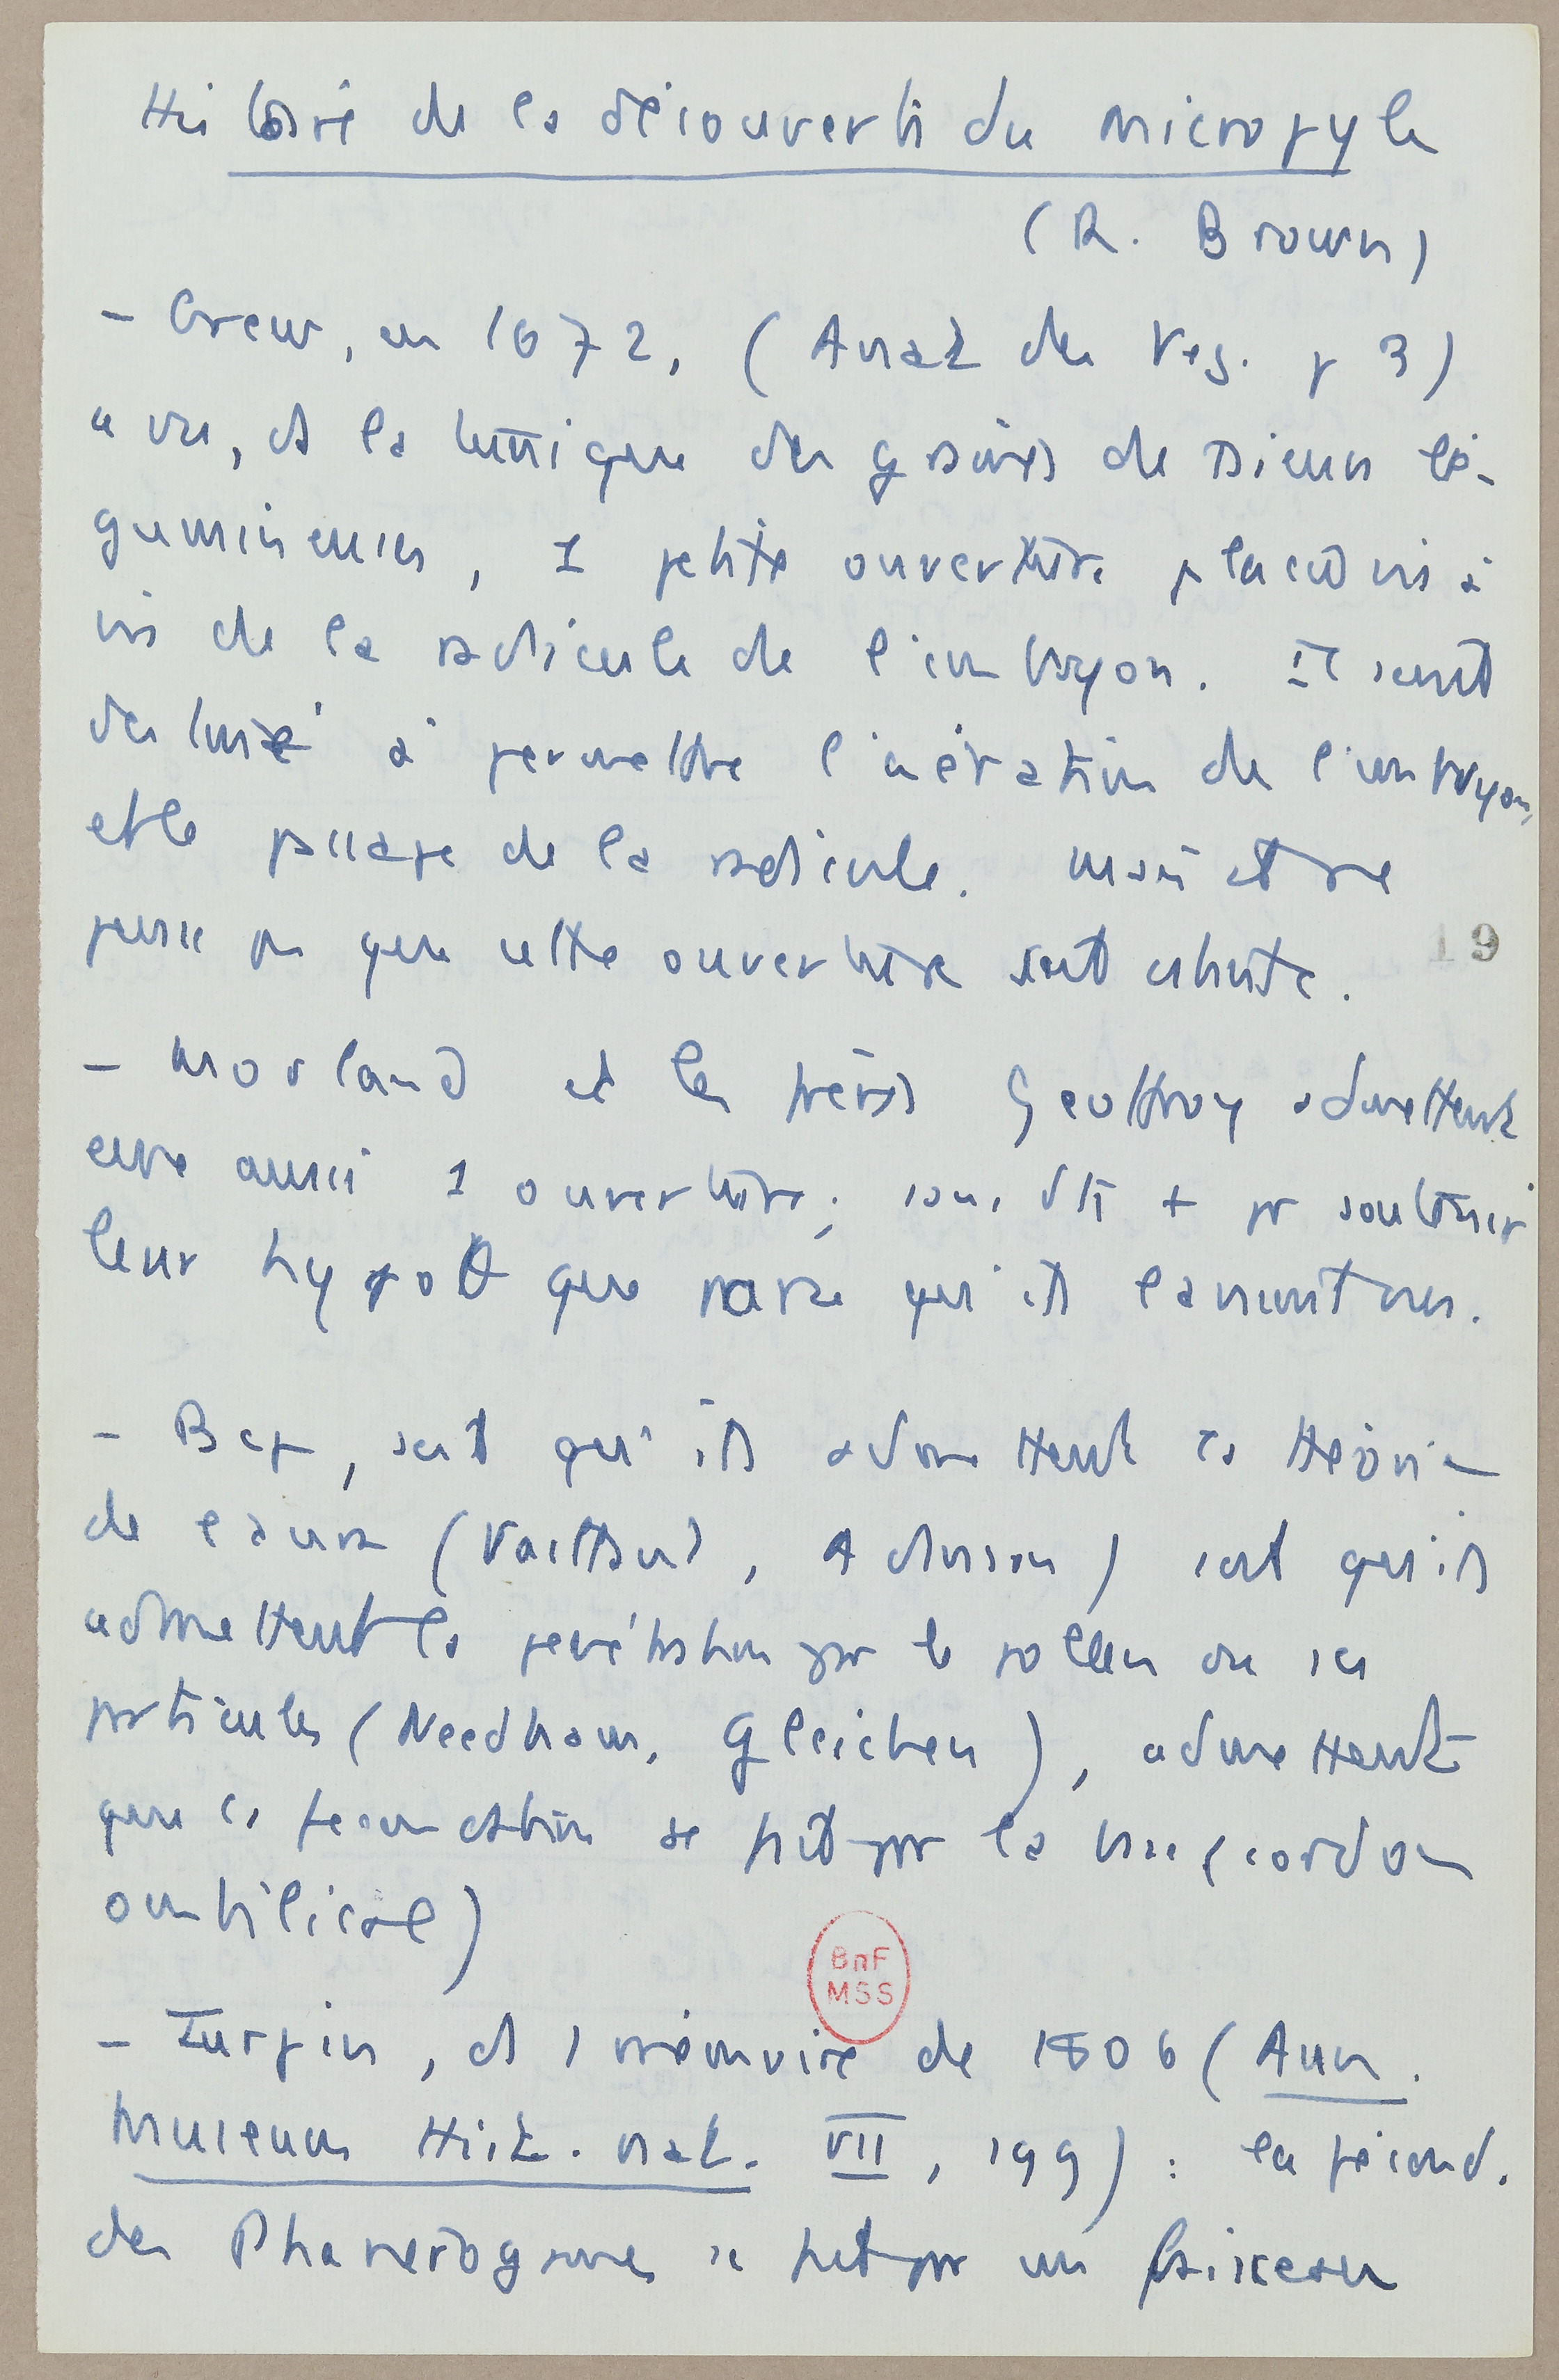 Histoire de la découverte du micropyle
(R. Brown)
– Grew, en 1672, (Anat des Veg. p 3)
a vu, ds la tunique des graines de pieurs lé-
gumineuses, 1 petite ouverture placée vis à
vis de la radicule de l'embryon. Il serait
destiné à permettre l'aération de l'embryon,
et le passage de la radicule. mais et ne
pense pas que cette ouverture soit
19
– Morland et les frères Geoffroy admettent
eux aussi 1 ouverture; sans dte + pr soutenir
leur hypoth que parce qu'ils l'auraient vue.
– Bcp, soit qu'ils admettent la théorie
de l'aura (Vaillant, Adanson) soit qu'ils
admettent la pénétration par le pollen ou ses
particules (Needham, Gleichen), admettent
que la fécondation se fait par la (cordon
ombilical)
BnF
MSS
– Turpin, ds 1 mémoire de 1806 (Ann.
Museum Hist. nat. VII, 199) : la fécond.
des Phanérogames se fait par un faisceau